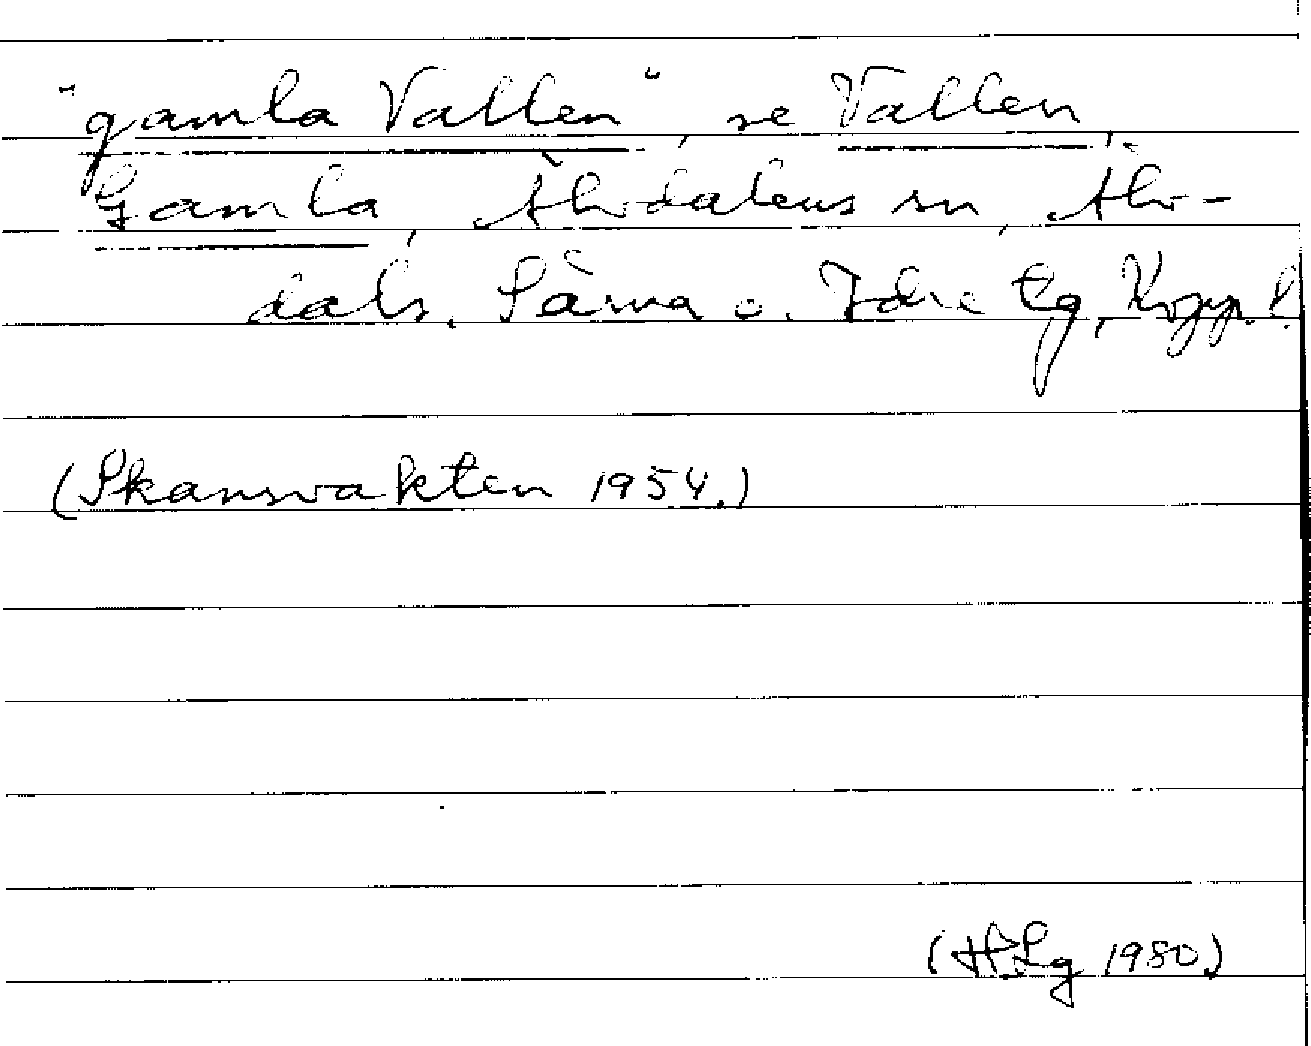 "gamla Vallen", se Vallen,
Gamla, Älvdalens sn, Älv-
dals, Särna o. Idre tg, Kopp. l.
(Skansvakten 1954.)
(HLg 1980)